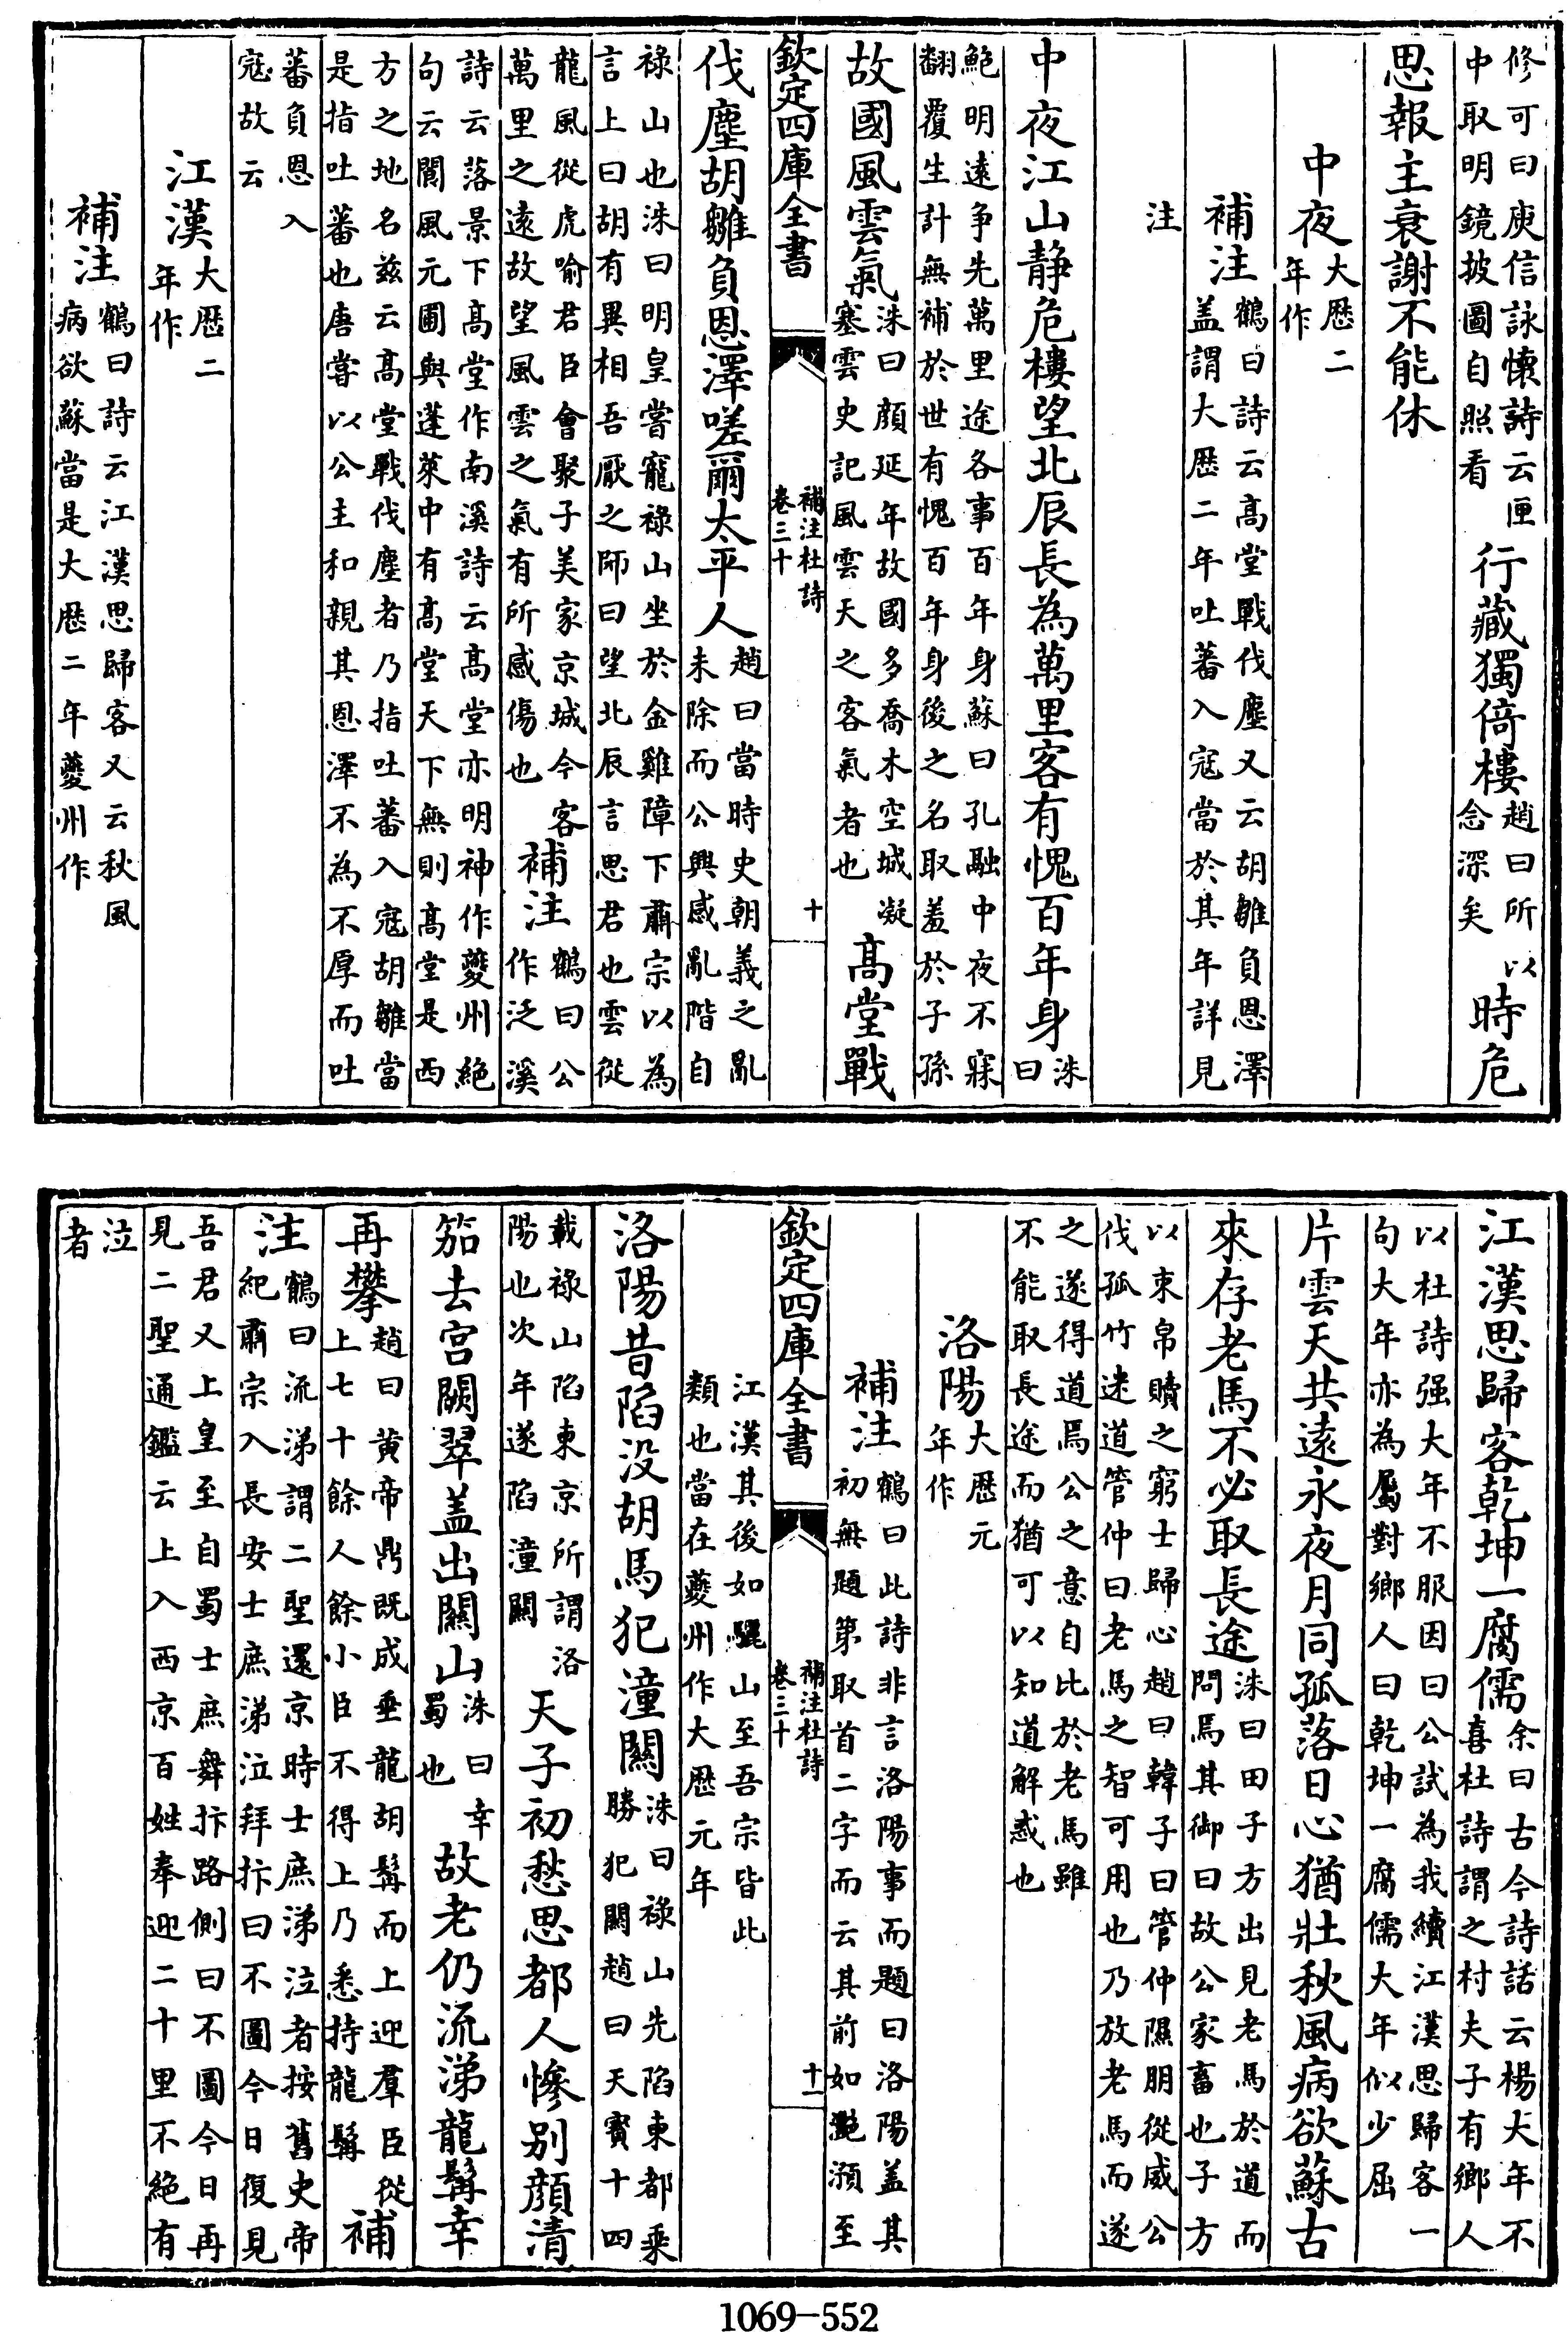 修可曰庾信詠懷詩云匣
中取明鏡披圖自照看
行藏獨倚樓
趙曰所以
念深矣
時危
思報主衰謝不能休
中夜
大厯二
年作
補注
鶴曰詩云髙堂戰伐塵又云胡雛負恩澤
盖謂大厯二年吐蕃入寇當於其年詳見
注
中夜江山静危樓望北辰長為萬里客有愧百年身
洙
曰
鮑明遠争先萬里途各事百年身蘇曰孔融中夜不寐
翻覆生計無補於世有愧百年身後之名取羞於子孫
故國風雲氣
洙曰顔延年故國多喬木空城凝
塞雲史記風雲天之客氣者也
髙堂戰
欽定四庫全書
補注杜詩
卷三十
十
伐塵胡雛負恩澤嗟爾太平人
趙曰當時史朝義之亂
未除而公興感亂階自
祿山也洙曰明皇嘗寵祿山坐於金雞障下肅宗以為
言上曰胡有異相吾厭之師曰望北辰言思君也雲從
龍風從虎喻君臣會聚子美家京城今客
萬里之遠故望風雲之氣有所感傷也
補注
鶴曰公
作泛溪
詩云落景下髙堂作南溪詩云髙堂亦明神作夔州絶
句云閬風元圃與蓬萊中有髙堂天下無則髙堂是西
方之地名兹云髙堂戰伐塵者乃指吐蕃入寇胡雛當
是指吐蕃也唐嘗以公主和親其恩澤不為不厚而吐
蕃負恩入
寇故云
江漢
大厯二
年作
補注
鶴曰詩云江漢思歸客又云秋風
病欲蘇當是大厯二年夔州作
江漢思歸客乾坤一腐儒
余曰古今詩話云楊大年不
喜杜詩謂之村夫子有鄉人
以杜詩强大年不服因曰公試為我續江漢思歸客一
句大年亦為屬對鄉人曰乾坤一腐儒大年似少屈
片雲天共遠永夜月同孤落日心猶壯秋風病欲蘇古
來存老馬不必取長途
洙曰田子方出見老馬於道而
問焉其御曰故公家畜也子方
以束帛贖之窮士歸心趙曰韓子曰管仲隰朋從威公
伐孤竹迷道管仲曰老馬之智可用也乃放老馬而遂
之遂得道焉公之意自比於老馬雖
不能取長途而猶可以知道解惑也
洛陽
大厯元
年作
補注
鶴曰此詩非言洛陽事而題曰洛陽盖其
初無題第取首二字而云其前如灔澦至
欽定四庫全書
補注杜詩
卷三十
十一
江漢其後如驪山至吾宗皆此
類也當在夔州作大厯元年
洛陽昔陷没胡馬犯潼關
洙曰祿山先陷東都乘
勝犯關趙曰天寳十四
載祿山陷東京所謂洛
陽也次年遂陷潼關
天子初愁思都人惨别顔清
笳去宫闕翠盖出關山
洙曰幸
蜀也
故老仍流涕龍髯幸
再攀
趙曰黄帝鼎既成垂龍胡髯而上迎羣臣從
上七十餘人餘小臣不得上乃悉持龍髯
補
注
鶴曰流涕謂二聖還京時士庶涕泣者按舊史帝
紀肅宗入長安士庶涕泣拜抃曰不圖今日復見
吾君又上皇至自蜀士庶舞抃路側曰不圖今日再
見二聖通鑑云上入西京百姓奉迎二十里不絶有
泣
者
1069-552